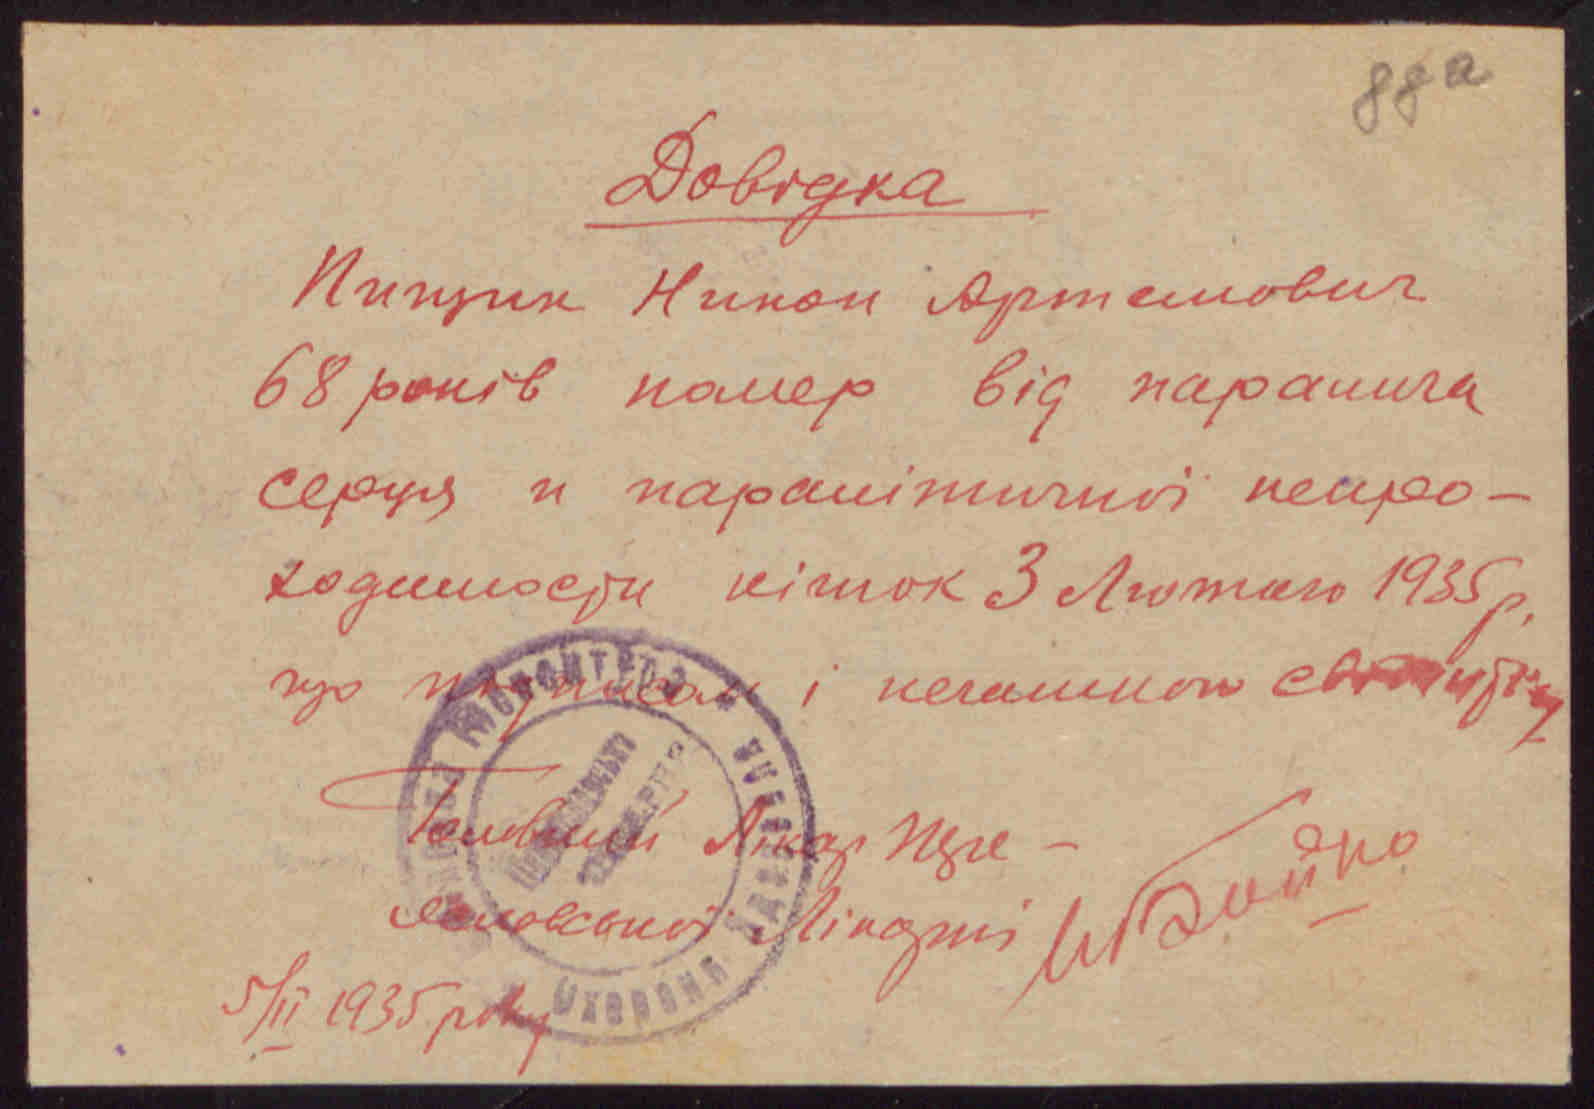 88а
Довідка
Пищик Никон Артемович
68 років помер від параліча
серця и паралітичної непро-
ходимости кішок 3 Лютого 1935 р.
що підписом і печаткою
Головний Лікар
Лікарні Бойко
5/II 1935 року
Охорона